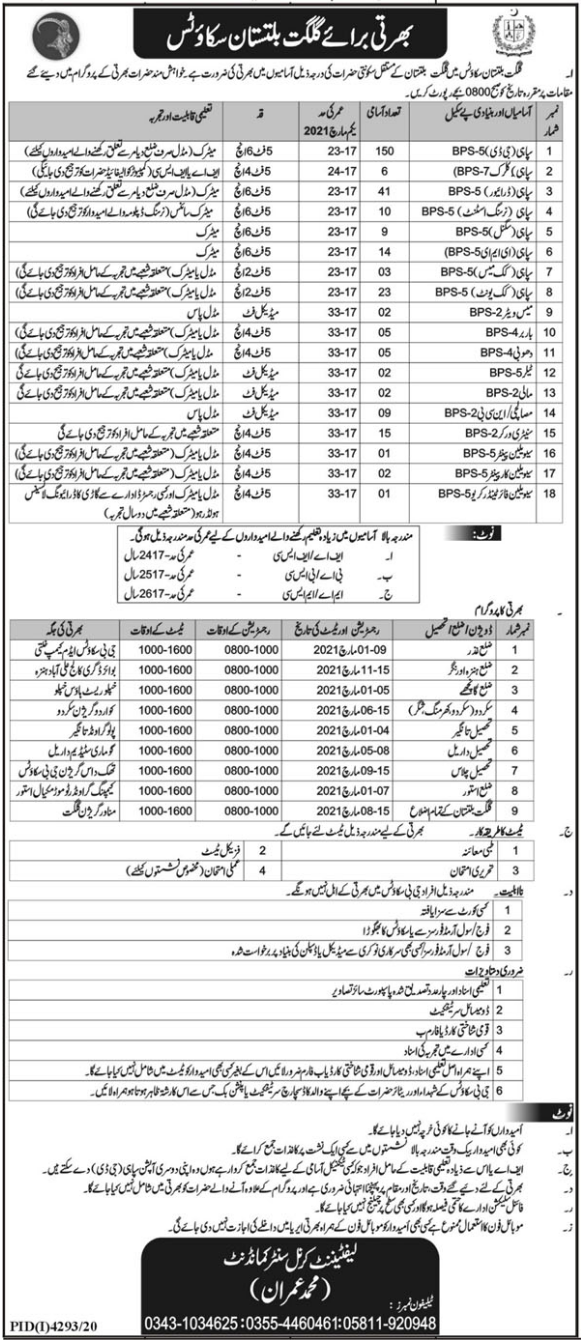 بھرتی برائے گلگت بلتستان سکاؤٹس
ا۔ گلگت بلتستان سکاؤٹس میں گلگت بلتستان کے مستقل سکونتی حضرات کی درجہ ذیل آسامیوں میں بھرتی کی ضرورت ہے۔ خواہش مند حضرات بھرتی کے پروگرام میں دیئے گئے
مقامات پر مقررہ تاریخ کو صبح 0800 بجے رپورٹ کریں۔
نمبر شمار آسامیاں اور بنیادی پے سکیل تعداد آسامی عمر کی حد یکم مارچ 2021 قد تعلیمی قابلیت اور تجربہ
1 سپاہی (جی ڈی) BPS-5 150 23-17 5فٹ6انچ میٹرک (مڈل صرف ضلع دیامر سے تعلق رکھنے والے امیدواروں کیلئے)
2 سپاہی (کلرک BPS-7) 6 24-17 5فٹ4انچ ایف اے/ایف ایس سی (کمپیوٹر کوالیفائیڈ حضرات کو ترجیح دی جائیگی)
3 سپاہی (ڈرائیور) BPS-5 41 23-17 5فٹ6انچ میٹرک (مڈل صرف ضلع دیامر سے تعلق رکھنے والے امیدواروں کیلئے)
4 سپاہی (نرسنگ اسسٹنٹ) BPS-5 10 23-17 5فٹ4انچ میٹرک سائنس (نرسنگ ڈپلومہ والے امیدوار کو ترجیح دی جائے گی)
5 سپاہی (سگنل) BPS-5 9 23-17 5فٹ6انچ میٹرک
6 سپاہی (ای ایم ای BPS-5) 14 23-17 5فٹ6انچ میٹرک
7 سپاہی (کک میس) BPS-5 03 23-17 5فٹ2انچ مڈل یا میٹرک (متعلقہ شعبے میں تجربہ کے حامل افراد کو ترجیح دی جائے گی)
8 سپاہی (کک یونٹ) BPS-5 23 23-17 5فٹ2انچ مڈل یا میٹرک (متعلقہ شعبے میں تجربہ کے حامل افراد کو ترجیح دی جائے گی)
9 میس ویٹر BPS-2 02 33-17 میڈیکل فٹ مڈل پاس
10 باربر BPS-4 05 33-17 5فٹ4انچ مڈل یا میٹرک (متعلقہ شعبے میں تجربہ کے حامل افراد کو ترجیح دی جائے گی)
11 دھوبی BPS-4 05 33-17 5فٹ4انچ مڈل یا میٹرک (متعلقہ شعبے میں تجربہ کے حامل افراد کو ترجیح دی جائے گی)
12 ٹیلر BPS-5 02 33-17 میڈیکل فٹ مڈل یا میٹرک (متعلقہ شعبے میں تجربہ کے حامل افراد کو ترجیح دی جائے گی)
13 مالی BPS-2 02 33-17 میڈیکل فٹ مڈل یا میٹرک (متعلقہ شعبے میں تجربہ کے حامل افراد کو ترجیح دی جائے گی)
14 مصالچی/این سی بی BPS-2 09 33-17 میڈیکل فٹ مڈل پاس
15 سینٹری ورکر BPS-2 15 33-17 5فٹ4انچ متعلقہ شعبے میں تجربہ کے حامل افراد کو ترجیح دی جائے گی
16 سویلین پینٹر BPS-5 01 33-17 5فٹ4انچ مڈل یا میٹرک (متعلقہ شعبے میں تجربہ کے حامل افراد کو ترجیح دی جائے گی)
17 سویلین کارپینٹر BPS-5 02 33-17 5فٹ4انچ مڈل یا میٹرک (متعلقہ شعبے میں تجربہ کے حامل افراد کو ترجیح دی جائے گی)
18 سویلین فائر ٹینڈر کریو BPS-5 01 33-17 5فٹ4انچ مڈل یا میٹرک اور کسی رجسٹرڈ ادارے سے گاڑی کا ڈرائیونگ لائسنس
ہولڈر ہو (متعلقہ شعبے میں دو سال تجربہ)
نوٹ: مندرجہ بالا آسامیوں میں زیادہ تعلیم رکھنے والے امیدواروں کے لیے عمر کی حد مندرجہ ذیل ہوگی۔
ا۔ ایف اے/ایف ایس سی - عمر کی حد-2417 سال
ب۔ بی اے/بی ایس سی - عمر کی حد-2517 سال
ج۔ ایم اے/ایم ایس سی - عمر کی حد-2617 سال
۔ بھرتی کا پروگرام
نمبر شمار ڈویژن/ضلع/تحصیل رجسٹریشن اور ٹیسٹ کی تاریخ رجسٹریشن کے اوقات ٹیسٹ کے اوقات بھرتی کی جگہ
1 ضلع غذر 01-09 مارچ 2021 0800-1000 1000-1600 جی بی سکاؤٹس ایڈم کیمپ
2 ضلع ہنزہ اور نگر 11-15 مارچ 2021 0800-1000 1000-1600 بوائز ڈگری کالج علی آباد ہنزہ
3 ضلع گانچھے 01-05 مارچ 2021 0800-1000 1000-1600 خپلو ریسٹ ہاؤس خپلو
4 سکردو (سکردو، کھرمنگ، شگر) 06-15 مارچ 2021 0800-1000 1000-1600 کواردو گریژن سکردو
5 تحصیل تانگیر 01-04 مارچ 2021 0800-1000 1000-1600 پولو گراؤنڈ تانگیر
6 تحصیل داریل 05-08 مارچ 2021 0800-1000 1000-1600 گوماری سٹیڈیم داریل
7 تحصیل چلاس 09-15 مارچ 2021 0800-1000 1000-1600 تھک داس گریژن جی بی سکاؤٹس
8 ضلع استور 01-07 مارچ 2021 0800-1000 1000-1600 کیمپنگ گراؤنڈ استور
9 گلگت بلتستان کے تمام اضلاع 08-15 مارچ 2021 0800-1000 1000-1600 مناور گریژن گلگت
ج۔ ٹیسٹ کا طریقہ کار۔ بھرتی کے لیے مندرجہ ذیل ٹیسٹ لئے جائیں گے۔
1 طبی معائنہ 2 فزیکل ٹیسٹ
3 تحریری امتحان 4 عملی امتحان (مخصوص نشستوں کیلئے)
د۔ نااہلیت۔ مندرجہ ذیل افراد جی بی سکاؤٹس میں بھرتی کے اہل نہیں ہونگے۔
1 کسی کورٹ سے سزا یافتہ
2 فوج/سول آرمڈ فورسز سے یا سکاؤٹس کا بھگوڑا
3 فوج/سول آرمڈ فورسز/کسی بھی سرکاری نوکری سے میڈیکل یا ڈسپلن کی بنیاد پر برخواست شدہ
ر۔ ضروری دستاویزات
1 تعلیمی اسناد اور چار عدد تصدیق شدہ پاسپورٹ سائز تصاویر
2 ڈومیسائل سرٹیفکیٹ
3 قومی شناختی کارڈ یا فارم ب
4 کسی ادارے میں تجربہ کی اسناد
5 اپنے ہمراہ اصل تعلیمی اسناد، ڈومیسائل اور قومی شناختی کارڈ یا ب فارم ضرور لائیں اس کے بغیر کسی بھی امیدوار کو ٹیسٹ میں شامل نہیں کیا جائے گا۔
6 جی بی سکاؤٹس کے شہداء اور ریٹائرڈ حضرات کے بچے اپنے والد کا ڈسچارج سرٹیفکیٹ یا پنشن بک جس سے اس کا رشتہ ظاہر ہوتا ہو ہمراہ لائیں۔
نوٹ
ا۔ امیدواروں کو آنے جانے کا کوئی خرچہ نہیں دیا جائے گا۔
ب۔ کوئی بھی امیدوار بیک وقت مندرجہ بالا نشستوں میں سے کسی ایک نشست پر کاغذات جمع کرائے گا۔
ج۔ ایف اے یا اس سے زیادہ تعلیمی قابلیت کے حامل افراد جو کسی ٹیکنیکل آسامی کے لیے کاغذات جمع کروا رہے ہوں وہ اپنی دوسری آپشن سپاہی (جی ڈی) دے سکتے ہیں۔
د۔ بھرتی کے لئے دیئے گئے وقت، تاریخ اور مقام پر پہنچنا انتہائی ضروری ہے اور پروگرام کے علاوہ آنے والے حضرات کو بھرتی میں شامل نہیں کیا جائے گا۔
ر۔ فائنل سلیکشن ادارے کا حتمی فیصلہ ہوگا اور کسی بھی سطح پر چیلنج نہیں کیا جائے گا۔
ز۔ موبائل فون کا استعمال ممنوع ہے کسی بھی امیدوار کو موبائل فون کے ہمراہ بھرتی ایریا میں داخلے کی اجازت نہیں دی جائے گی۔
لیفٹیننٹ کرنل سنٹر کمانڈنٹ
(محمد عمران)
ٹیلیفون نمبرز:
0343-1034625:0355-4460461:05811-920948
PID(I)4293/20